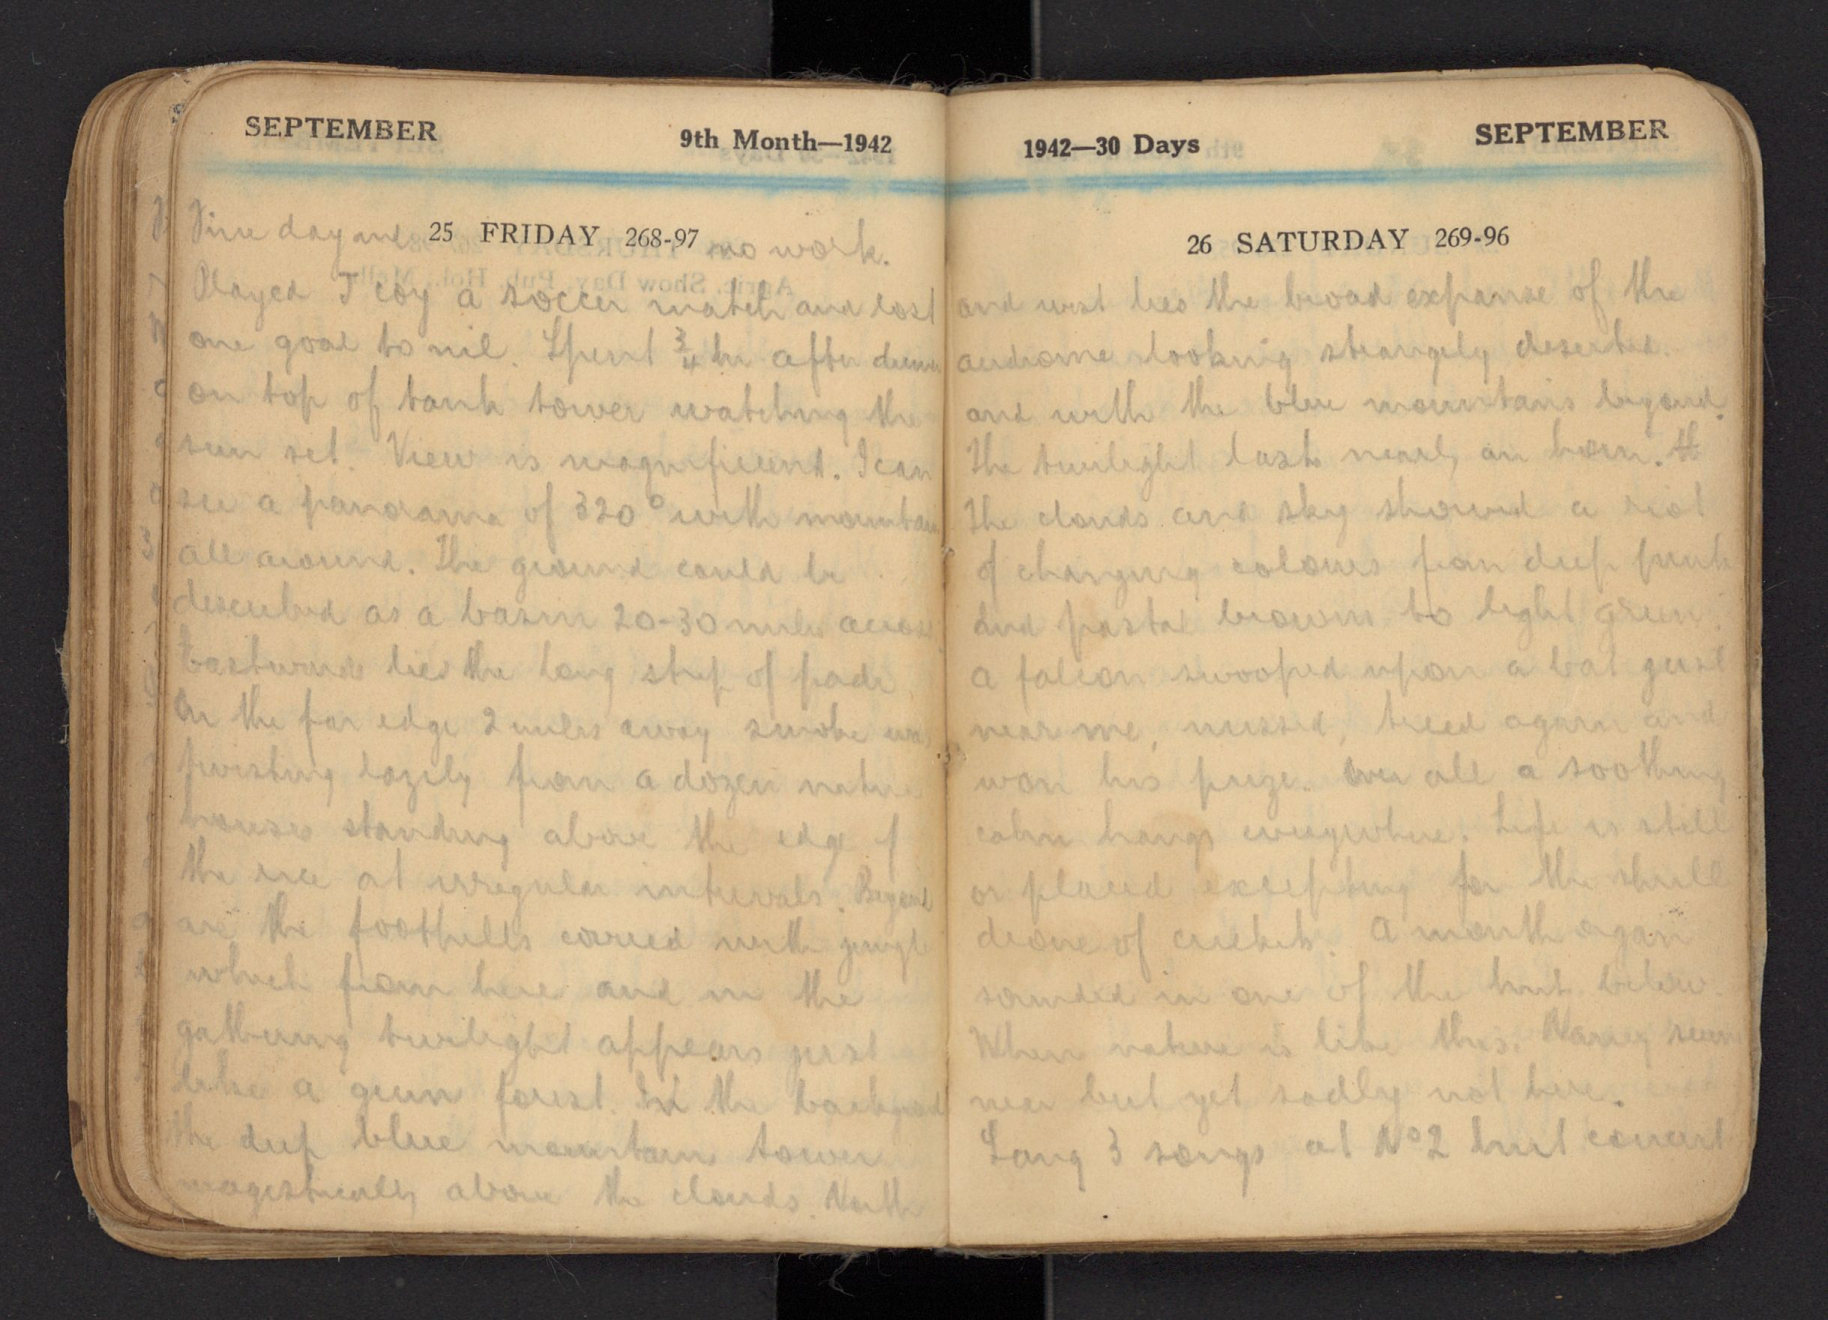 SEPTEMBER 9th Month—1942
25 FRIDAY 268-97
Fine day and no work.
Played J coy a soccer match and lost
one goal to nil. Spent 3/4 hr after dinner
on top of tank tower watching the
sun set. View is magnificent. I can
see a panorama of 320° with mountains
all around. The ground could be
described as a basin 20-30 miles across
Eastwards lies the long strip of padi.
On the far edge 2 miles away smoke was
twisting lazily from a dozen native
houses standing above the edge of
the rice at irregular intervals. Beyond
are the foothills covered with jungle
which from here and in the
gathering twilight appears just
like a green forest. In the background
the deep blue mountains tower
magestically above the clouds. North
1942—30 Days SEPTEMBER
26 SATURDAY 269-96
and west lies the broad expanse of the
aerdrome looking strangely deserted.
and with the blue mountains beyond.
The twilight lasts nearly an hour. th
The clouds and sky showed a riot
of changing colours from deep pink
and pastel browns to light green.
A falcon swooped upon a bat just
near me, missed, tried again and
won his prize. Over all a soothing
calm hangs everywhere. Life is still
or placid excepting for the shrill
drone of crickets. A mouth organ
sounded in one of the huts below.
When nature is like this, Nancy seems
near but yet sadly not here.
Sang 3 songs at No 2 hut concert